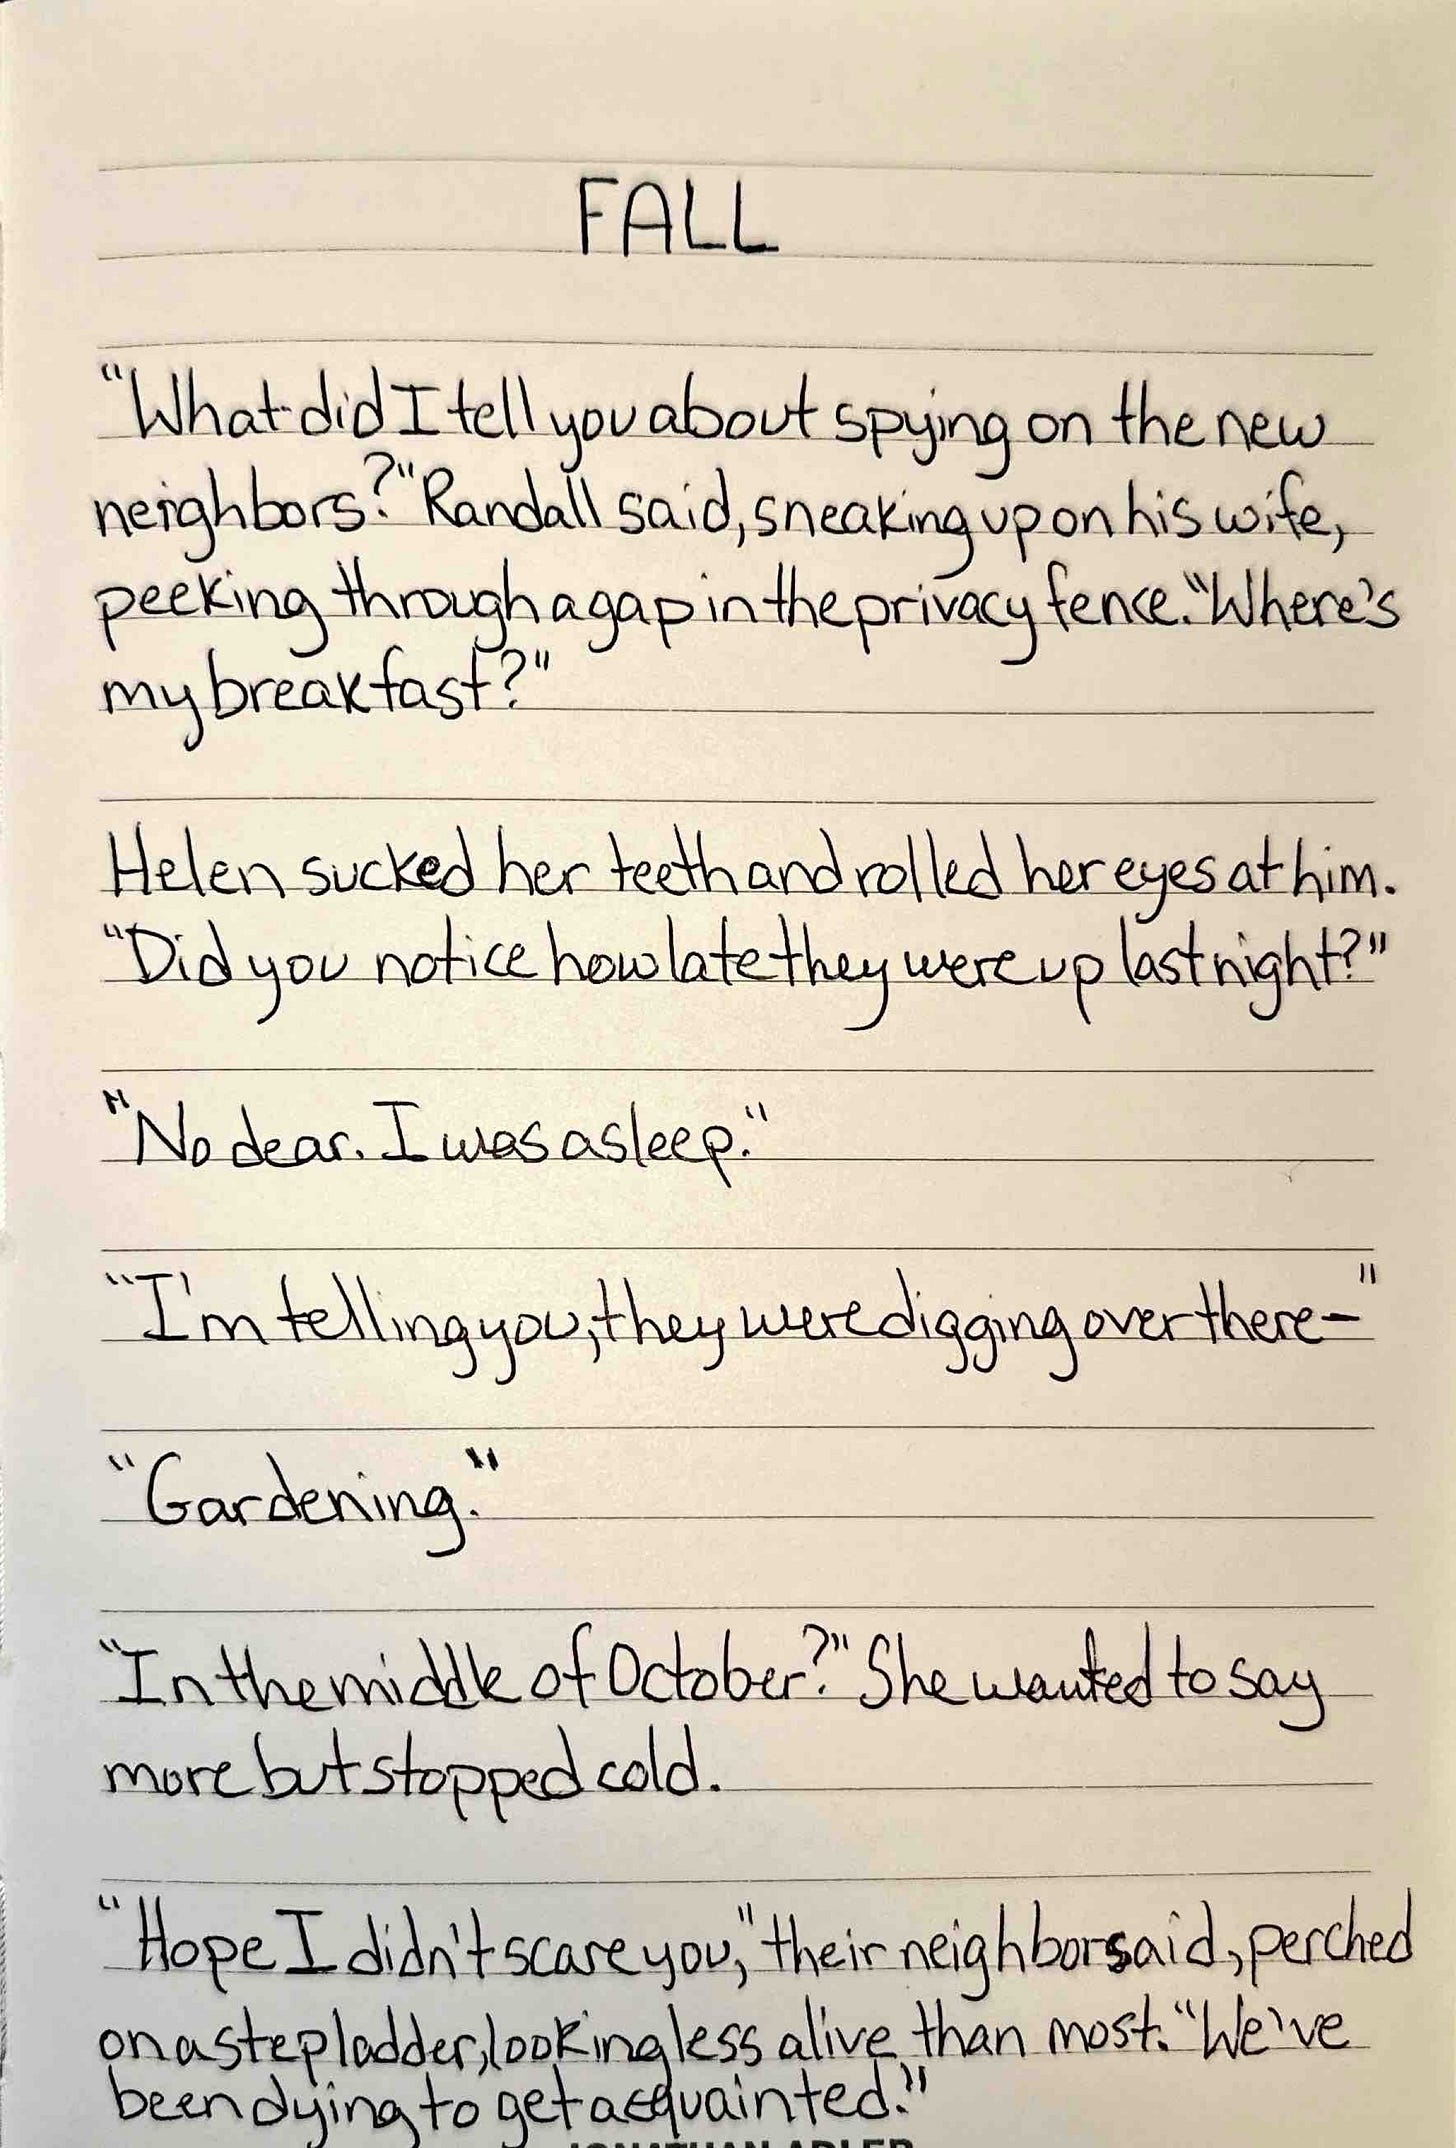 FALL
"What did I tell you about spying on the new
neighbors?" Randall said, sneaking up on his wife,
peeking through a gap in the privacy fence. "Where's
my breakfast?"
Helen sucked her teeth and rolled her eyes at him.
"Did you notice how late they were up last night?"
"No dear. I was asleep."
"I'm telling you, they were digging over there—"
"Gardening."
"In the middle of October?" She wanted to say
more but stopped cold.
"Hope I didn't scare you," their neighbor said, perched
on a step ladder, looking less alive than most. "We've
been dying to get acquainted."
JONATHAN ADLER